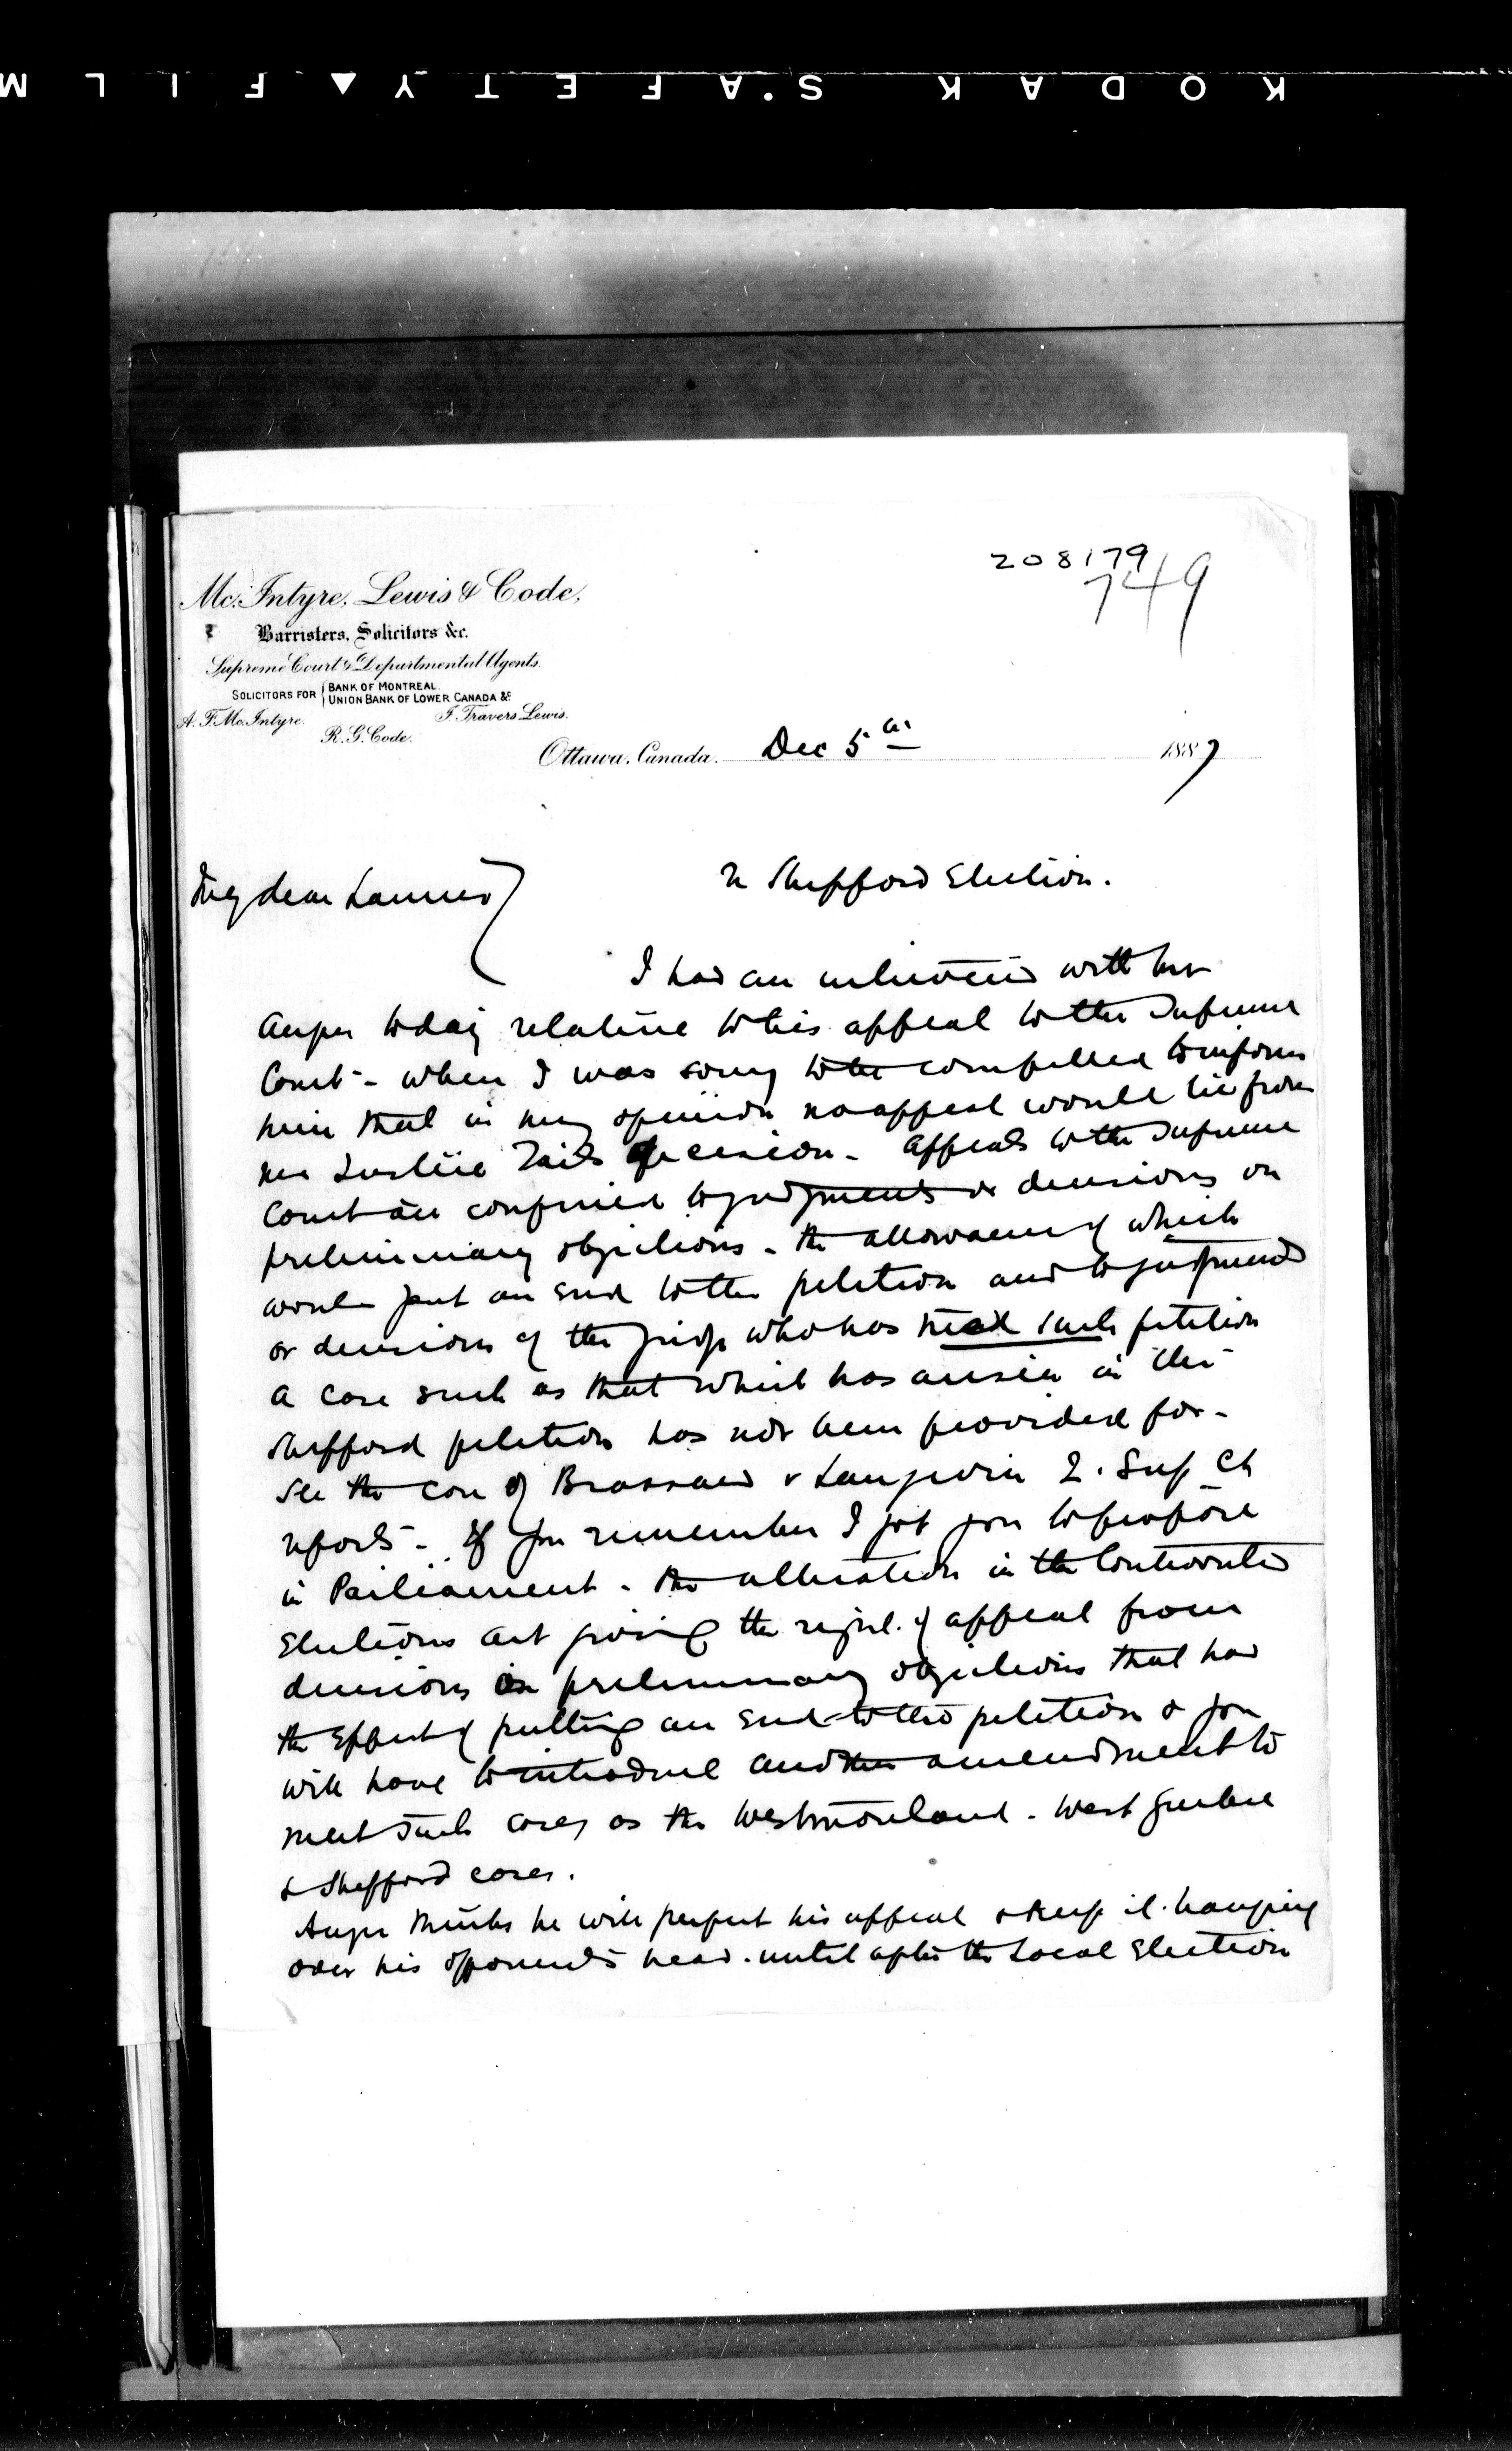 KODAK S.AFETY▲FILM
208179
749
Mc.Intyre, Lewis & Code,
Barristers, Solicitors &c.
Supreme Court & Departmental Agents.
SOLICITORS FOR { BANK OF MONTREAL.
UNION BANK OF LOWER CANADA &c
A. F. Mc.Intyre. F. Travers Lewis.
R. G. Code.
Ottawa, Canada. Dec 5th 1887
re Shefford Election.
My dear Laurier
I had an interview with Mr
Auger today relative to his appeal to the Supreme
Court - when I was sorry to be compelled to inform
him that in my opinion no appeal would lie from
Mr Justice Taits decision - appeals to the Supreme
Court are confined to judgments or decisions on
preliminary objections - the allowance of which
would put an end to the petition and to judgments
or decisions of the Judge who has tried such petition
a case such as that which has arisen in the
Shefford petition has not been provided for -
See the case of Brassard v Langevin 2. Sup Ct
reports - If you remember I got you to propose
in Parliament - the alteration in the Controverted
Elections Act giving the right of appeal from
decisions on preliminary objections that had
the effect of putting an end to the petition & you
will have to introduce another amendment to
meet such cases as the Westmoreland - West Quebec
& Shefford cases.
Auger thinks he will perfect his appeal & keep it hanging
over his opponents head - until after the Local Election